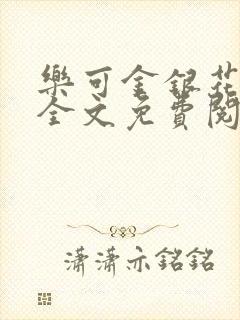 樂可金銀花
全文免費閱
瀟瀟亦銘銘